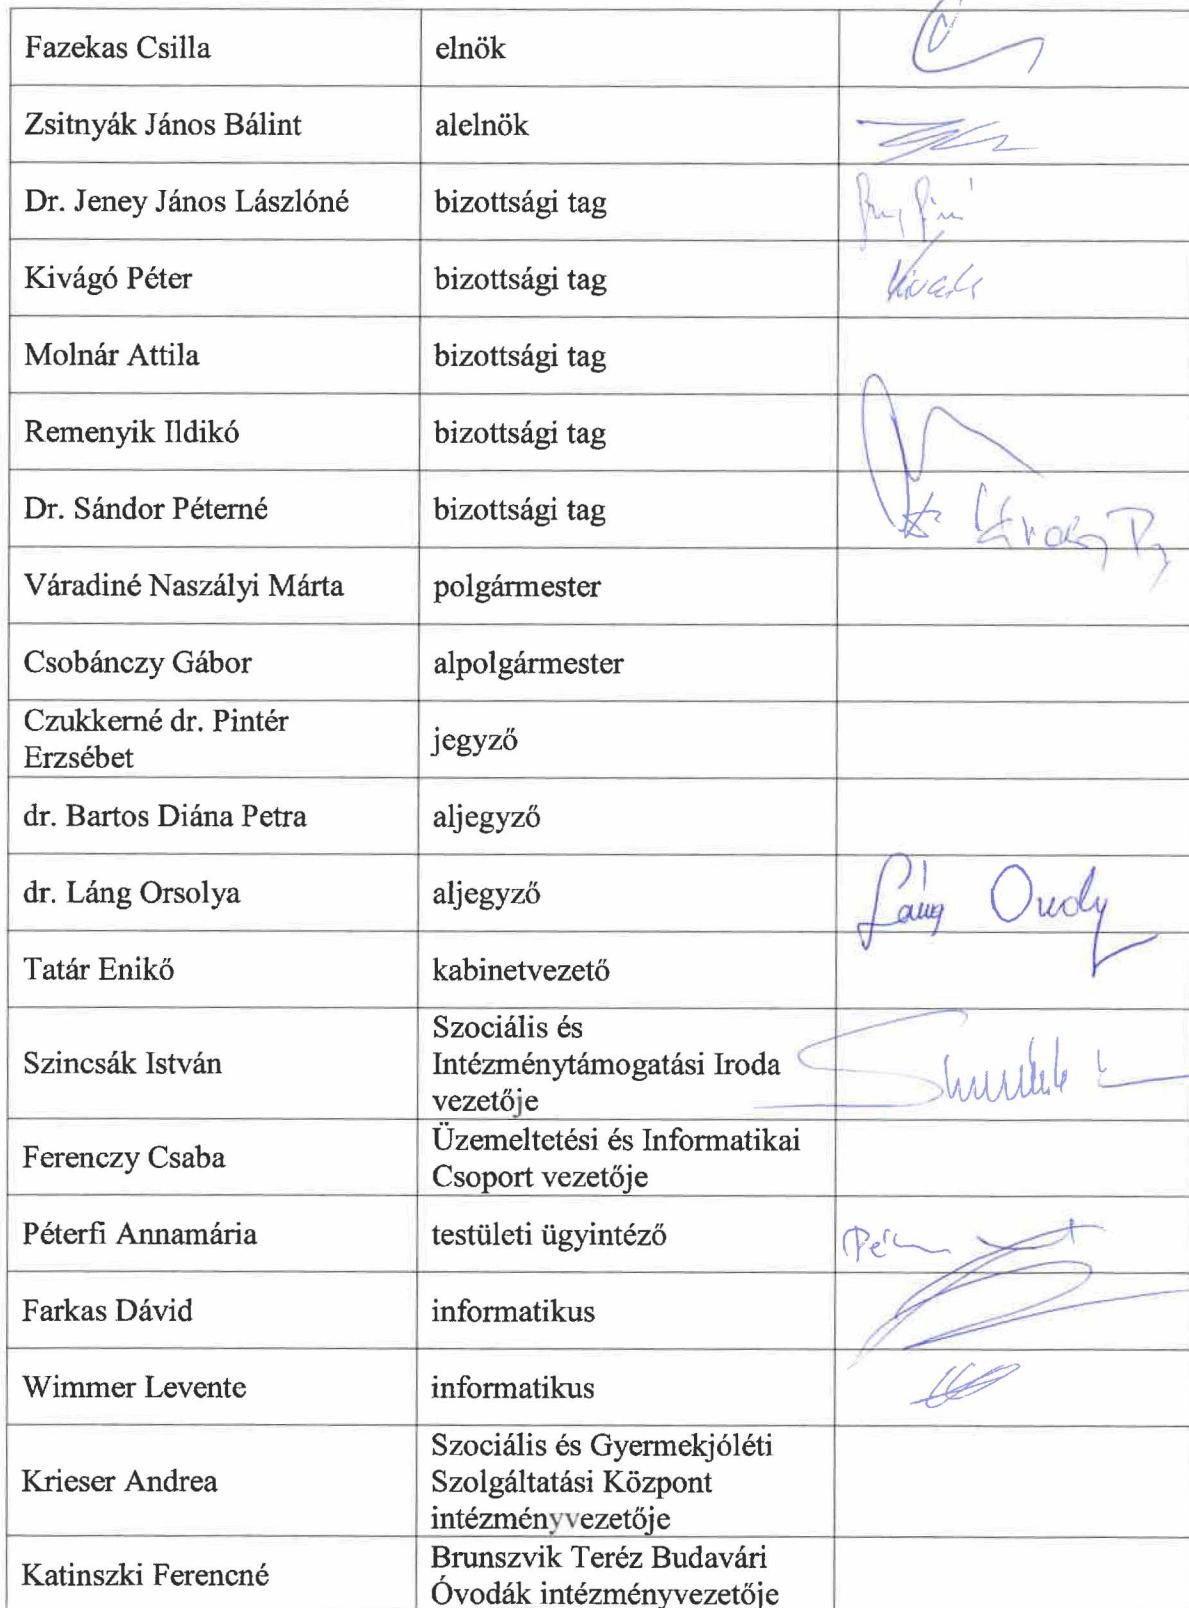 Fazekas Csilla elnök
Zsitnyák János Bálint alelnök
Dr. Jeney János Lászlóné bizottsági tag
Kivágó Péter bizottsági tag
Molnár Attila bizottsági tag
Remenyik Ildikó bizottsági tag
Dr. Sándor Péterné bizottsági tag
Váradiné Naszályi Márta polgármester
Csobánczy Gábor alpolgármester
Czukkerné dr. Pintér
Erzsébet
jegyző
dr. Bartos Diána Petra aljegyző
dr. Láng Orsolya aljegyző Láng
Tatár Enikő kabinetvezető
Szincsák István
Szociális és
Intézménytámogatási Iroda
vezetője
Ferenczy Csaba
Üzemeltetési és Informatikai
Csoport vezetője
Péterfi Annamária testületi ügyintéző
Farkas Dávid informatikus
Wimmer Levente informatikus
Krieser Andrea
Szociális és Gyermekjóléti
Szolgáltatási Központ
intézményvezetője
Katinszki Ferencné
Brunszvik Teréz Budavári
Óvodák intézményvezetője